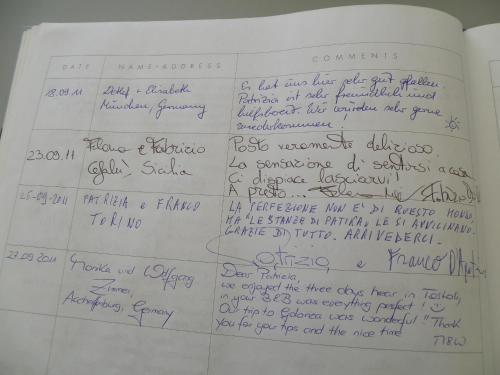 DATE NAME-ADDRESS COMMENTS
18.09.11
Detlef + Elisabeth
München, Germany
Es hat uns hier sehr gut gefallen.
Patrizia ist sehr freundlich und
hilfsbereit. Wir würden sehr gerne
wiederkommen!
23.09.11
Flavia e Fabrizio
Cefalù, Sicilia
Posto veramente delizioso.
La sensazione di sentirsi a casa
Ci dispiace lasciarvi!
A presto...
25-09-2011
PATRIZIA E FRANCO
TORINO
LA PERFEZIONE NON E' DI QUESTO MONDO,
MA "LE STANZE DI PATIRA" LE SI AVVICINANO.
GRAZIE DI TUTTO. ARRIVEDERCI.
Patrizia e Franco
27.09.2011
Monika und Wolfgang
Aschaffenburg, Germany
Dear Patrizia,
we enjoyed the three days hear in
in your B&B was everything perfect!
Our trip to was wonderful!! Thank
you for you tips and the nice time